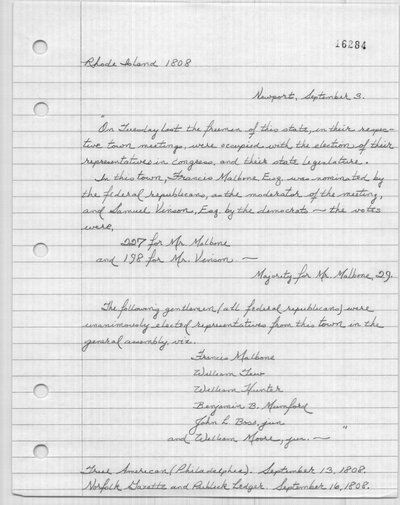 16284
Rhode Island 1808
Newport, September 3.
"On Tuesday last the freemen of this state, in their respec-
tive town meetings, were occupied with the election of their
representatives in congress, and their state legislature.
In this town, Francis Malbone Esq. was nominated by
the federal republicans, as the moderator of the meeting,
and Samuel Vinson, Esq. by the democrats — the votes
were,
227 for Mr. Malbone
and 198 for Mr. Vinson —
Majority for Mr. Malbone, 29.
The following gentlemen (all federal republicans) were
unanimously elected representatives from this town in the
general assembly, viz.
Francis Malbone
William Tew
William Hunter
Benjamin B. Mumford
John L. Boss, jun
and William Moore, jun. — "
True American (Philadelphia). September 13, 1808.
Norfolk Gazette and Publick Ledger. September 16, 1808.